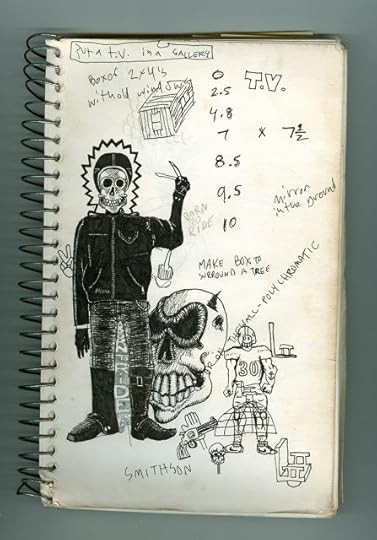 PUT A T.V. IN A GALLERY
BOX OF 2x4's
with old windows
0
T.V.
2.5
4.8
7 x 7 1/2
8.5
9.5
10
Mirror
in the ground
BORN
TO
RIDE
MAKE BOX TO
SURROUND A TREE
POLYCHROMATIC
30
SMITHSON